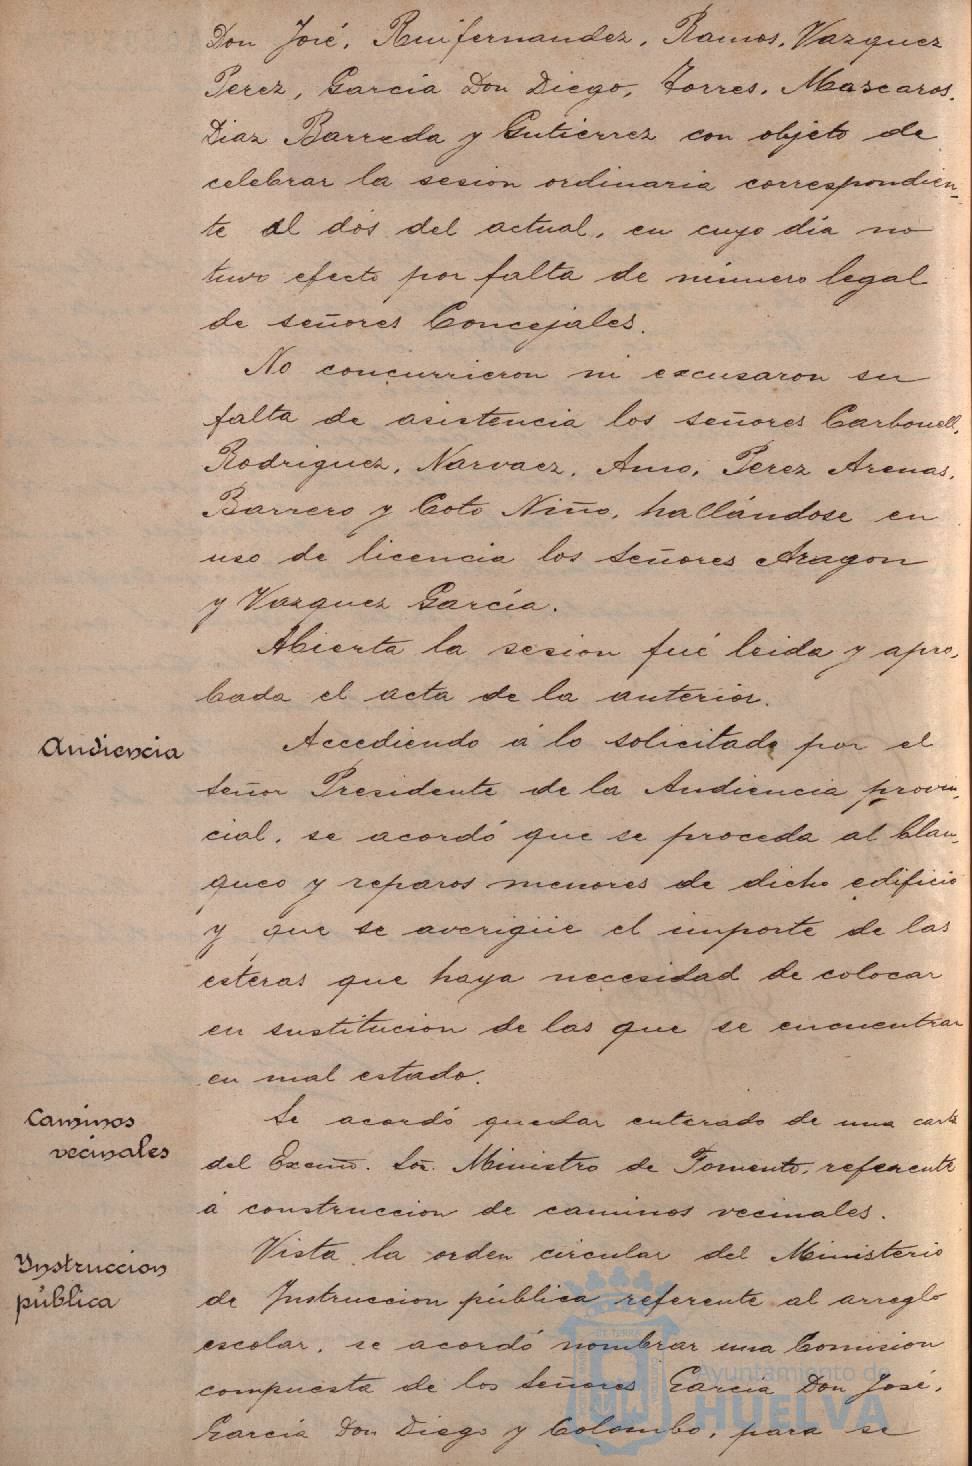 Don José, Ruifernandez, Ramos, Vazquez
Perez, García Don Diego, Torres, Mascaros,
Diaz Barreda y Gutierrez con objeto de
celebrar la sesion ordinaria correspondien-
te al dos del actual, en cuyo dia no
tuvo efecto por falta de número legal
de señores Concejales.
No concurrieron ni excusaron su
falta de asistencia los señores Carbonell,
Rodriguez, Narvaez, Amo, Perez Arenas,
Barrero y Coto Niño, hallándose en
uso de licencia los señores Aragon
y Vazquez García.
Abierta la sesion fué leida y apro-
bada el acta de la anterior.
Audiencia
Accediendo á lo solicitado por el
señor Presidente de la Audiencia provin-
cial, se acordó que se proceda al blan-
queo y reparos menores de dicho edificio
y que se averigüe el importe de las
esteras que haya necesidad de colocar
en sustitucion de las que se encuentran
en mal estado.
Caminos
vecinales
Se acordó quedar enterado de una carta
del Excmo. Sor. Ministro de Fomento, referente
á construccion de caminos vecinales.
Instruccion
pública
Vista la orden circular del Ministerio
de Instruccion pública referente al arreglo
escolar, se acordó nombrar una Comision
compuesta de los señores García Don José,
García Don Diego y Colombo, para se
Ayuntamiento de
HUELVA